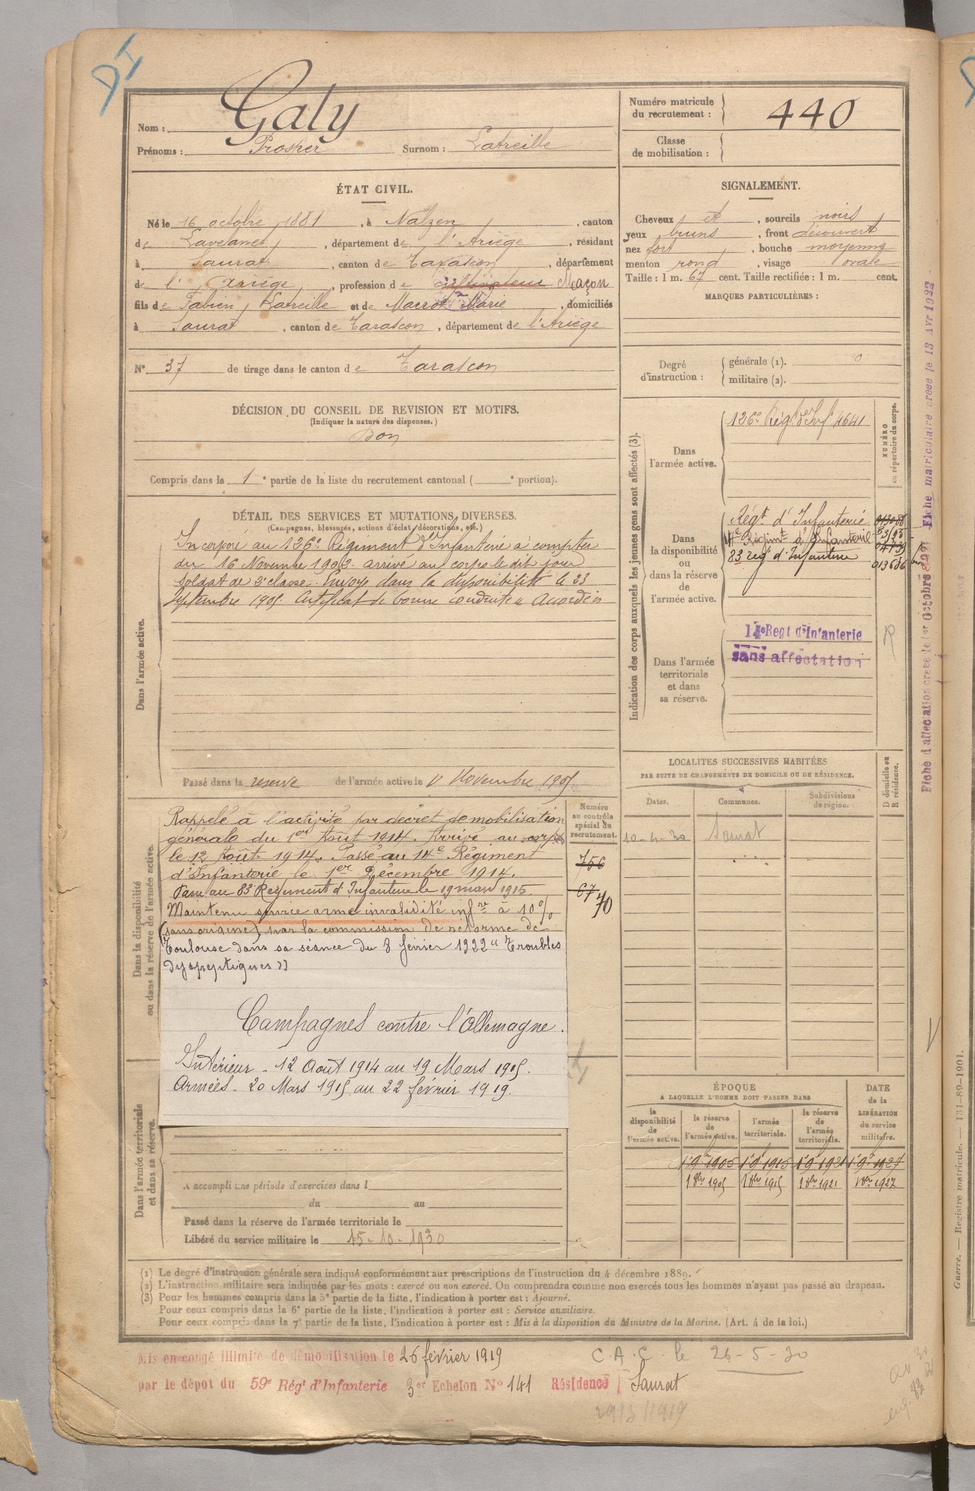 Nom : Galy
Prénoms : Prosper Surnom : Latreille
Numéro matricule du recrutement : 440
Classe de mobilisation :
ÉTAT CIVIL.
Né le 16 octobre 1881, à Nalzen, canton
de Lavelanet, département de l'Ariège, résidant
à Saurat, canton de Tarascon, département
de l'Ariège, profession de cultivateur Maçon
fils de Fabien, Latreille et de Marie, domiciliés
à Saurat, canton de Tarascon, département de l'Ariège
N° 37 de tirage dans le canton de Tarascon
SIGNALEMENT.
Cheveux et, sourcils noirs
yeux bruns, front découvert
nez fort, bouche moyenne
menton rond, visage ovale
Taille : 1 m. 67 cent. Taille rectifiée : 1 m. cent.
MARQUES PARTICULIÈRES :
Degré d'instruction : générale (1). 0
militaire (2).
DÉCISION DU CONSEIL DE REVISION ET MOTIFS.
(Indiquer la nature des dispenses.)
Bon
Compris dans la 1e partie de la liste du recrutement cantonal ( e portion).
DÉTAIL DES SERVICES ET MUTATIONS DIVERSES.
(Campagnes, blessures, actions d'éclat, décorations, etc.)
Dans l'armée active.
Incorporé au 126e Régiment d'Infanterie à compter
du 16 Novembre 1903. arrivé au corps le dit jour
Soldat de 2e classe. Envoyé dans la disponibilité le 23
septembre 1905. Certificat de bonne conduite Accordé
Passé dans la réserve de l'armée active le 1 Novembre 1905
Indication des corps auxquels les jeunes gens sont affectés (3).
NUMÉRO au répertoire du corps.
Dans l'armée active.
126e Rég. d'Inf. 4641
Dans la disponibilité ou dans la réserve de l'armée active.
Régt d'Infanterie
14e Régimt d'Infanterie
83 reg d'Infanterie
Dans l'armée territoriale et dans sa réserve.
14e Regt d'Infanterie
sans affectation
R
LOCALITÉS SUCCESSIVES HABITÉES
PAR SUITE DE CHANGEMENTS DE DOMICILE OU DE RÉSIDENCE.
Dates. Communes. Subdivisions de région. D domicile ou R résidence.
10-4-30 Saurat
Dans la disponibilité ou dans la réserve de l'armée active.
Numéro au contrôle spécial du recrutement.
756
67
70
Rappelé à l'activité par décret de mobilisation
générale du 1er Août 1914. Arrivé au corps
le 12 Août 1914. Passé au 14e Régiment
d'Infanterie le 1er Décembre 1914.
Passé au 83 Régiment d'Infanterie le 19 mars 1915
Maintenu service armé invalidité infre à 10%
(sans origine) par la commission de réforme de
Toulouse dans sa séance du 8 février 1922 "Troubles
dyspeptiques"
Campagnes contre l'Allemagne.
Intérieur - 12 Août 1914 au 19 Mars 1915.
Armées - 20 Mars 1915 au 22 février 1919.
Dans l'armée territoriale et dans sa réserve.
A accompli une période d'exercices dans l
du au
Passé dans la réserve de l'armée territoriale le
Libéré du service militaire le 15-10-1930
ÉPOQUE
A LAQUELLE L'HOMME DOIT PASSER DANS
la disponibilité de l'armée active. la réserve de l'armée active. l'armée territoriale. la réserve de l'armée territoriale.
DATE de la LIBÉRATION du service militaire.
1 9 1905 1 9 1915 1 9 1921 1 9 1927
1 8bre 1905 1 8bre 1915 1 8bre 1921 1 8bre 1927
(1) Le degré d'instruction générale sera indiqué conformément aux prescriptions de l'instruction du 4 décembre 1889.
(2) L'instruction militaire sera indiquée par les mots : exercé ou non exercé. On comprendra comme non exercés tous les hommes n'ayant pas passé au drapeau.
(3) Pour les hommes compris dans la 5e partie de la liste, l'indication à porter est : Ajourné.
Pour ceux compris dans la 6e partie de la liste, l'indication à porter est : Service auxiliaire.
Pour ceux compris dans la 7e partie de la liste, l'indication à porter est : Mis à la disposition du Ministre de la Marine. (Art. 4 de la loi.)
Mis en congé illimité de démobilisation le 26 février 1919
par le dépôt du 59e Régt d'Infanterie 3er Echelon N° 141 Résidence Saurat
C.A.C. le 26-5-30
Fiche matriculaire créée le 13 Avr 1922
Guerre. — Registre matricule. — 131-89-1901.